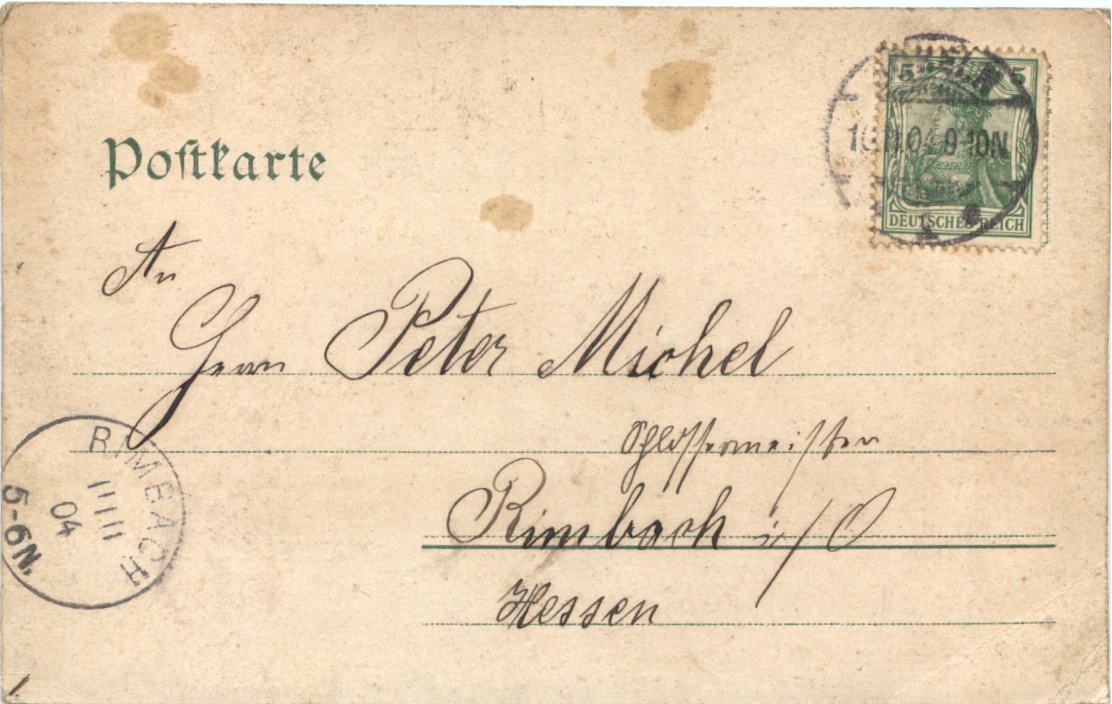 Postkarte
5 5
9-10N
DEUTSCHES REICH
An
Herrn Peter Michel
Schlossermeister
Rimbach i/O
Hessen
RIMBACH
11 11
04
5-6N.